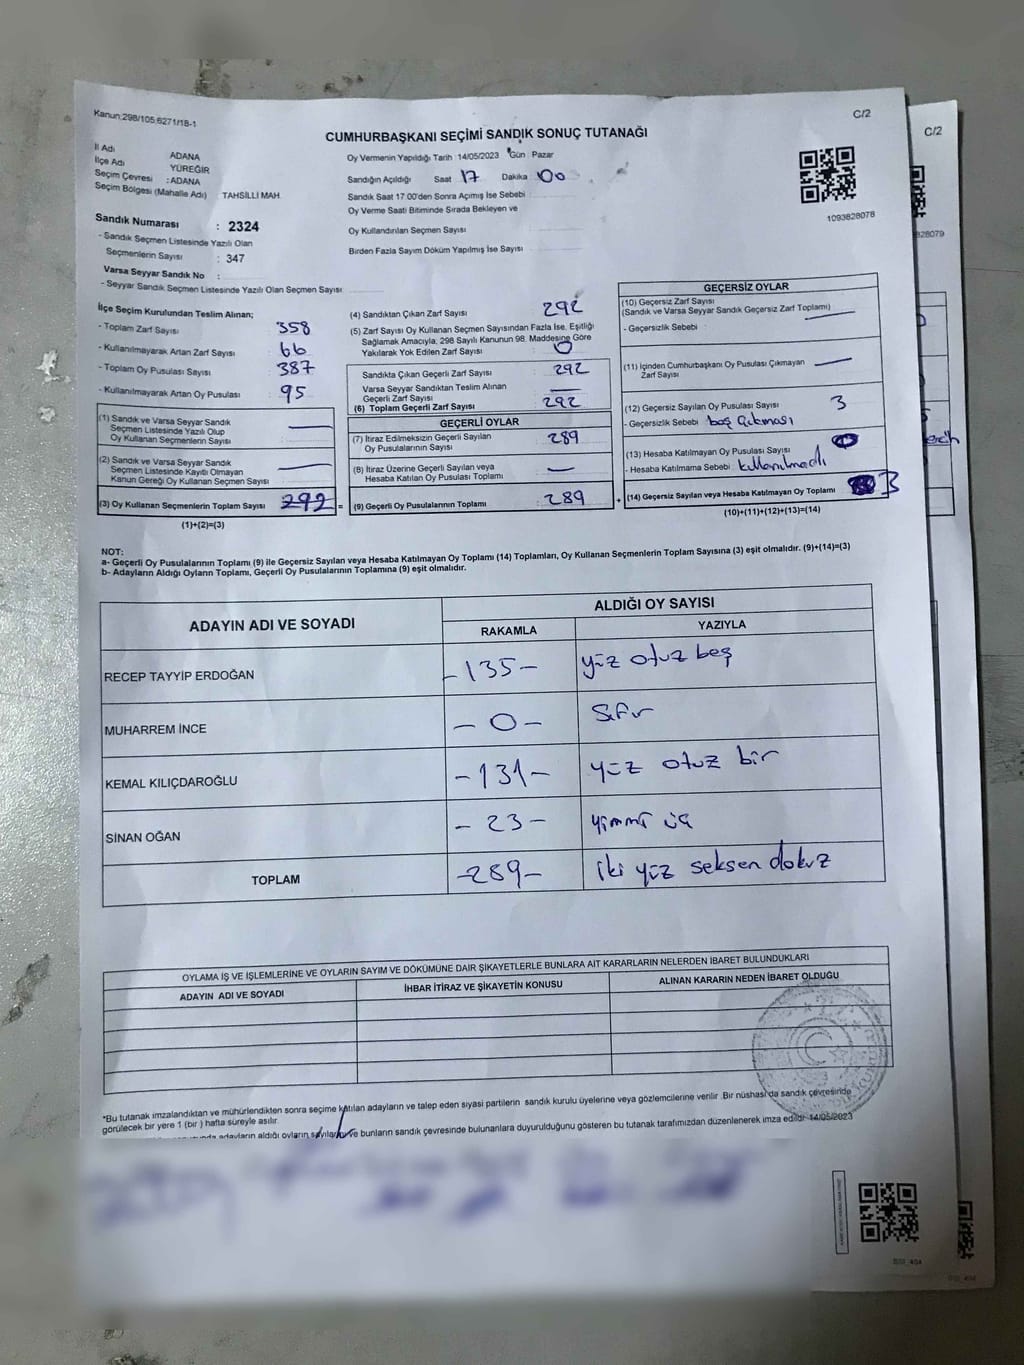 Kanun:298/105,6271/18-1
C/2
C/2
CUMHURBAŞKANI SEÇİMİ SANDIK SONUÇ TUTANAĞI
İl Adı ADANA
İlçe Adı YÜREĞİR
Seçim Çevresi : ADANA
Seçim Bölgesi (Mahalle Adı) : TAHSİLLİ MAH.
Oy Vermenin Yapıldığı Tarih 14/05/2023 Gün : Pazar
Sandığın Açıldığı Saat 17 Dakika 00
Sandık Saat 17.00'den Sonra Açımış İse Sebebi
Oy Verme Saati Bitiminde Sırada Bekleyen ve
Oy Kullandırılan Seçmen Sayısı
Birden Fazla Sayım Döküm Yapılmış İse Sayısı
1093828078
328079
Sandık Numarası : 2324
- Sandık Seçmen Listesinde Yazılı Olan
Seçmenlerin Sayısı : 347
Varsa Seyyar Sandık No :
- Seyyar Sandık Seçmen Listesinde Yazılı Olan Seçmen Sayısı:
İlçe Seçim Kurulundan Teslim Alınan;
- Toplam Zarf Sayısı : 358
- Kullanılmayarak Artan Zarf Sayısı : 66
- Toplam Oy Pusulası Sayısı : 387
- Kullanılmayarak Artan Oy Pusulası : 95
(1) Sandık ve Varsa Seyyar Sandık
Seçmen Listesinde Yazılı Olup
Oy Kullanan Seçmenlerin Sayısı —
(2) Sandık ve Varsa Seyyar Sandık
Seçmen Listesinde Kayıtlı Olmayan
Kanun Gereği Oy Kullanan Seçmen Sayısı —
(3) Oy Kullanan Seçmenlerin Toplam Sayısı 292 =
(1)+(2)=(3)
(4) Sandıktan Çıkan Zarf Sayısı : 292
(5) Zarf Sayısı Oy Kullanan Seçmen Sayısından Fazla İse, Eşitliği
Sağlamak Amacıyla, 298 Sayılı Kanunun 98. Maddesine Göre
Yakılarak Yok Edilen Zarf Sayısı : 0
Sandıkta Çıkan Geçerli Zarf Sayısı : 292
Varsa Seyyar Sandıktan Teslim Alınan
Geçerli Zarf Sayısı : —
(6) Toplam Geçerli Zarf Sayısı : 292
GEÇERLİ OYLAR
(7) İtiraz Edilmeksizin Geçerli Sayılan
Oy Pusulalarının Sayısı : 289
(8) İtiraz Üzerine Geçerli Sayılan veya
Hesaba Katılan Oy Pusulası Toplamı : —
(9) Geçerli Oy Pusulalarının Toplamı : 289 +
GEÇERSİZ OYLAR
(10) Geçersiz Zarf Sayısı
(Sandık ve Varsa Seyyar Sandık Geçersiz Zarf Toplamı) —
- Geçersizlik Sebebi :
(11) İçinden Cumhurbaşkanı Oy Pusulası Çıkmayan
Zarf Sayısı —
(12) Geçersiz Sayılan Oy Pusulası Sayısı 3
- Geçersizlik Sebebi boş çıkması
(13) Hesaba Katılmayan Oy Pusulası Sayısı
- Hesaba Katılmama Sebebi : kullanılmadı
(14) Geçersiz Sayılan veya Hesaba Katılmayan Oy Toplamı 3
(10)+(11)+(12)+(13)=(14)
NOT:
a- Geçerli Oy Pusulalarının Toplamı (9) ile Geçersiz Sayılan veya Hesaba Katılmayan Oy Toplamı (14) Toplamları, Oy Kullanan Seçmenlerin Toplam Sayısına (3) eşit olmalıdır. (9)+(14)=(3)
b- Adayların Aldığı Oyların Toplamı, Geçerli Oy Pusulalarının Toplamına (9) eşit olmalıdır.
ADAYIN ADI VE SOYADI
ALDIĞI OY SAYISI
RAKAMLA YAZIYLA
RECEP TAYYİP ERDOĞAN -135- yüz otuz beş
MUHARREM İNCE -0- Sıfır
KEMAL KILIÇDAROĞLU -131- yüz otuz bir
SİNAN OĞAN -23- yirmi üç
TOPLAM -289- iki yüz seksen dokuz
OYLAMA İŞ VE İŞLEMLERİNE VE OYLARIN SAYIM VE DÖKÜMÜNE DAİR ŞİKAYETLERLE BUNLARA AİT KARARLARIN NELERDEN İBARET BULUNDUKLARI
ADAYIN ADI VE SOYADI İHBAR İTİRAZ VE ŞİKAYETİN KONUSU ALINAN KARARIN NEDEN İBARET OLDUĞU
*Bu tutanak imzalandıktan ve mühürlendikten sonra seçime katılan adayların ve talep eden siyasi partilerin sandık kurulu üyelerine veya gözlemcilerine verilir .Bir nüshası da sandık çevresinde
görülecek bir yere 1 (bir ) hafta süreyle asılır.
adayların aldığı oyların ve bunların sandık çevresinde bulunanlara duyurulduğunu gösteren bu tutanak tarafımızdan düzenlenerek imza edildi. 14/05/2023